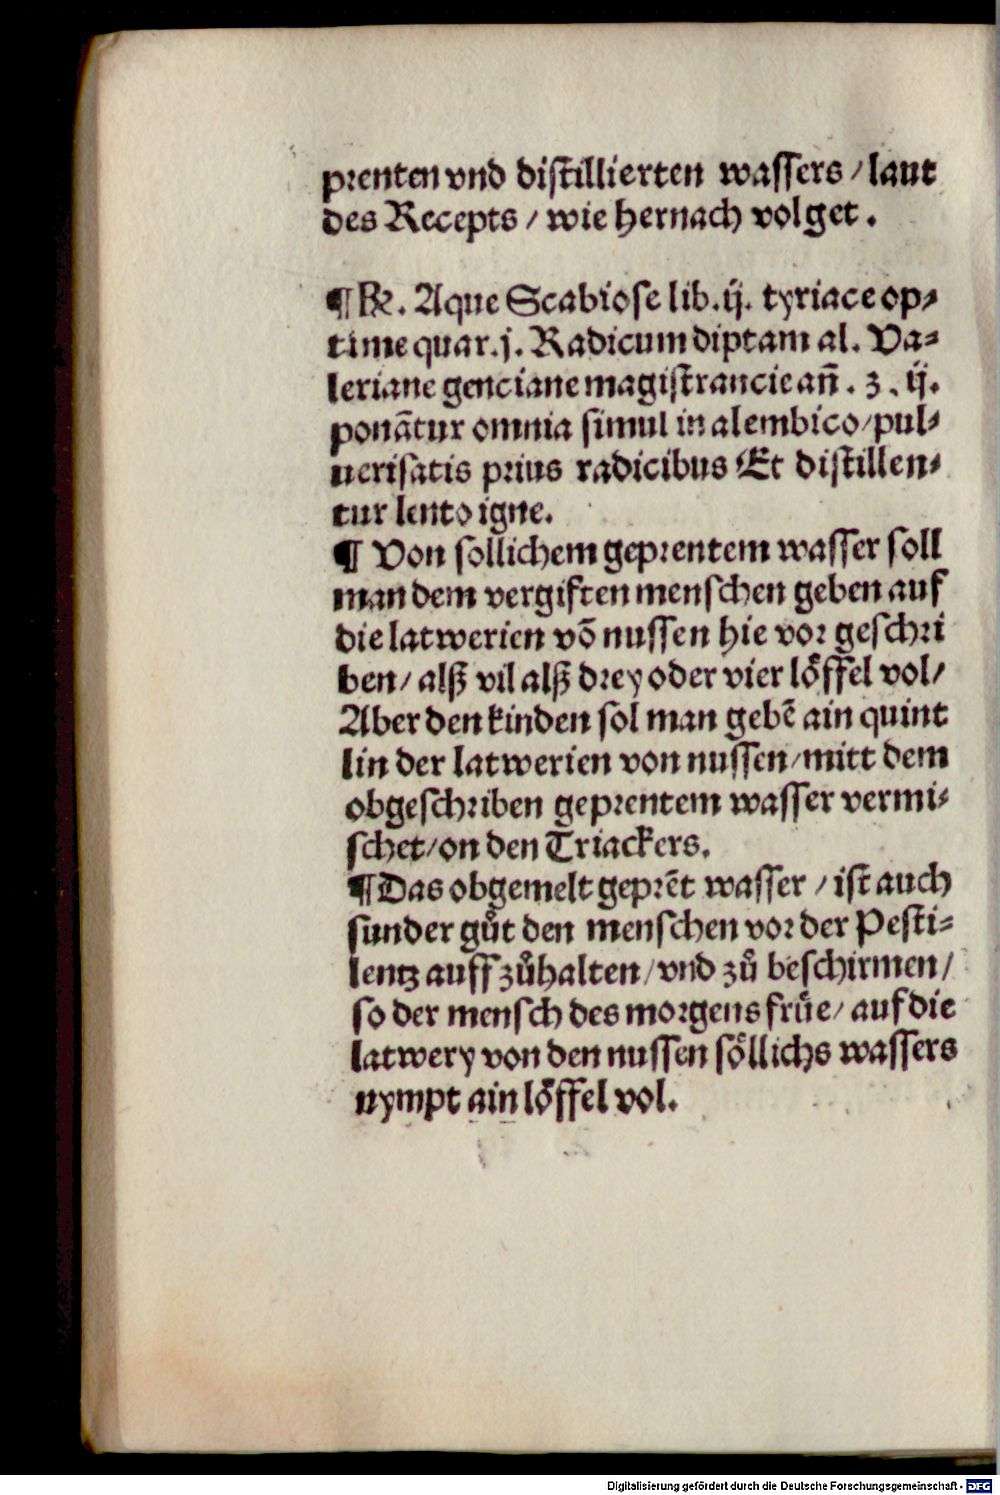 prenten vnd distillierten wassers / laut
des Recepts / wie hernach volget.
¶ ℞. Aque Scabiose lib.ij. tyriace op⸗
time quar.j. Radicum diptam al. Va⸗
leriane genciane magistrancie añ. ʒ. ij.
ponãtur omnia simul in alembico / pul⸗
uerisatis prius radicibus Et distillen⸗
tur lento igne.
¶ Von sollichem geprentem wasser soll
man dem vergiften menschen geben auf
die latwerien võ nussen hie vor geschri
ben / alß vil alß drey oder vier lôffel vol /
Aber den kinden sol man gebẽ ain quint
lin der latwerien von nussen / mitt dem
obgeschriben geprentem wasser vermi⸗
schet / on den Triackers.
¶ Das obgemelt geprẽt wasser / ist auch
sunder gůt den menschen vor der Pesti⸗
lentz auff zůhalten / vnd zů beschirmen /
so der mensch des morgens frůe / auf die
latwery von den nussen sôllichs wassers
nympt ain lôffel vol.
Digitalisierung gefördert durch die Deutsche Forschungsgemeinschaft - DFG